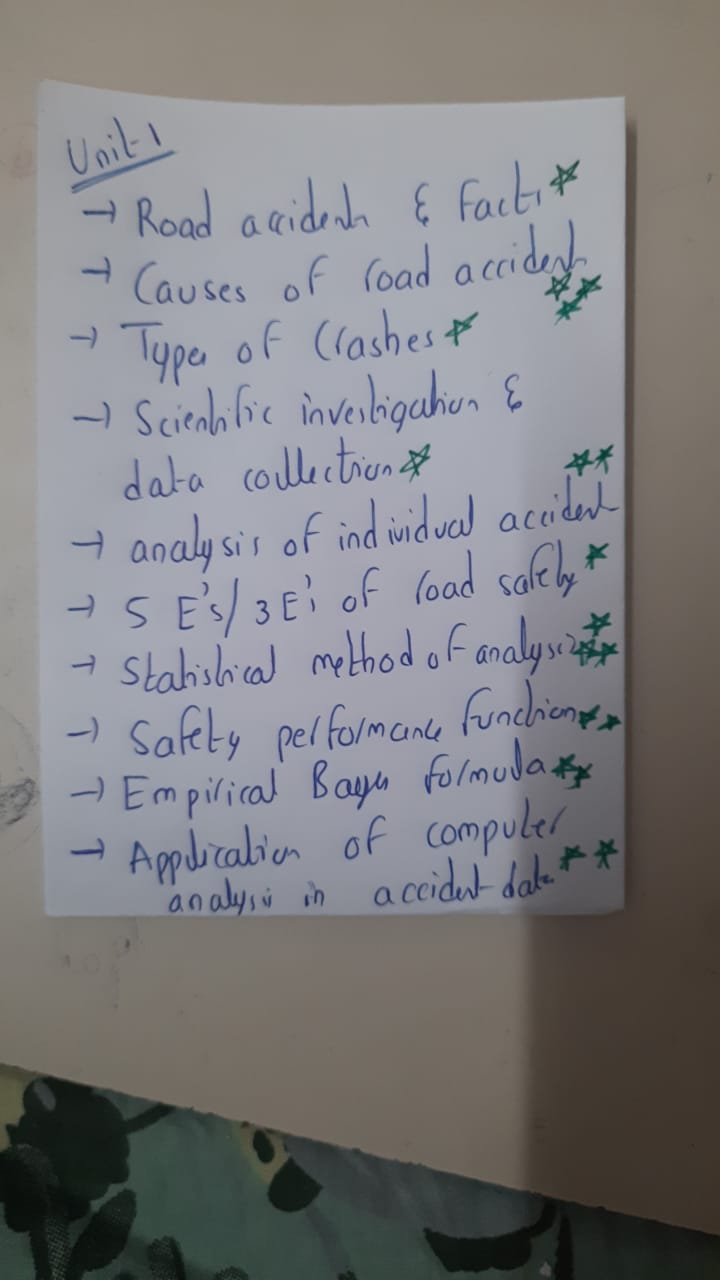 Unit-1
→ Road accidents & Facts
→ Causes of road accidents
→ Types of Crashes
→ Scientific investigation &
data collection
→ analysis of individual accident
→ 5 E's/3E's of road safety
→ Statistical method of analysis
→ Safety performance function
→ Empirical Bayes formula
→ Application of computer
analysis in accident data